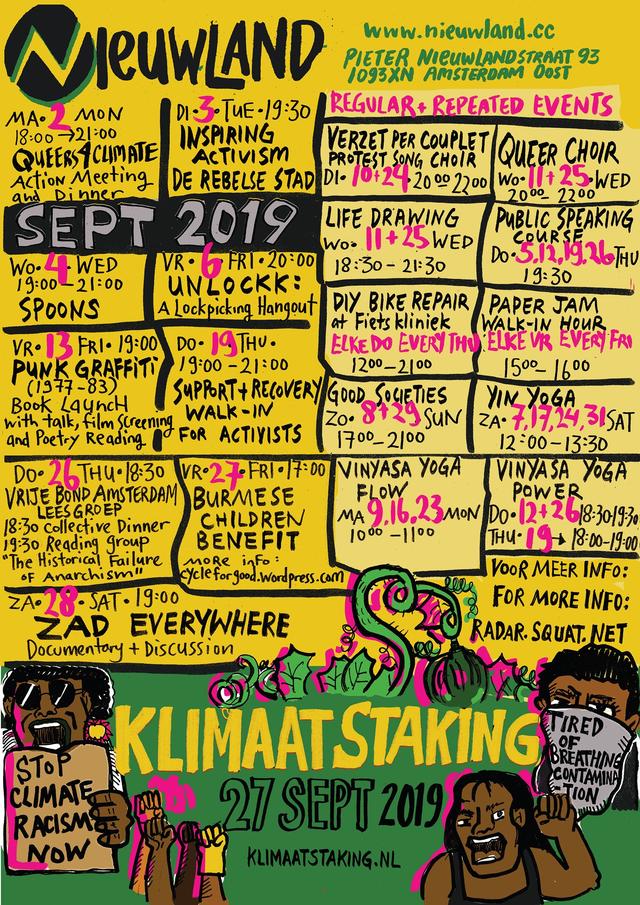 NIEUWLAND
www.nieuwland.cc
PIETER NIEUWLANDSTRAAT 93
1093XN AMSTERDAM OOST
MA•2 MON
18:00→21:00
QUEERS4CLIMATE
Action Meeting
and Dinner
DI•3•TUE•19:30
INSPIRING
ACTIVISM
DE REBELSE STAD
SEPT 2019
WO•4 WED
19:00-21:00
SPOONS
VR•6•FRI•20:00
UNLOCKK:
A Lockpicking Hangout
VR•13 FRI•19:00
PUNK GRAFFITI
(1977-83)
Book Launch
with talk, film Screening
and Poetry Reading
DO•19THU•
19:00-21:00
SUPPORT+RECOVERY
WALK-IN
FOR ACTIVISTS
DO•26THU•18:30
VRIJE BOND AMSTERDAM
LEESGROEP
18:30 collective Dinner
19:30 Reading group
"The Historical Failure
OF Anarchism"
VR•27•FRI•17:00
BURMESE
CHILDREN
BENEFIT
MORE info:
cycleforgood.wordpress.com
ZA•28•SAT•19:00
ZAD EVERYWHERE
Documentary + Discussion
REGULAR+REPEATED EVENTS
VERZET PER COUPLET
PROTEST SONG CHOIR
DI•10+24 20:00 22:00
QUEER CHOIR
WO•11+25•WED
20:00 22:00
LIFE DRAWING
WO•11+25 WED
18:30-21:30
PUBLIC SPEAKING
COURSE
DO•5,12,19,26THU
19:30
DIY BIKE REPAIR
at Fietskliniek
ELKE DO EVERY THU
12:00-21:00
PAPER JAM
WALK-IN HOUR
ELKE VR EVERY FRI
15:00-16:00
GOOD SOCIETIES
ZO•8+29 SUN
17:00-21:00
YIN YOGA
ZA•7,17,24,31SAT
12:00-13:30
VINYASA YOGA
FLOW
MA 9,16,23MON
10:00-11:00
VINYASA YOGA
POWER
DO•12+26 18:30-19:30
THU•19→18:00-19:00
VOOR MEER INFO:
FOR MORE INFO:
RADAR.SQUAT.NET
KLIMAATSTAKING
27 SEPT 2019
KLIMAATSTAKING.NL
STOP
CLIMATE
RACISM
NOW
TIRED
OF
BREATHING
CONTAMINA
-TION